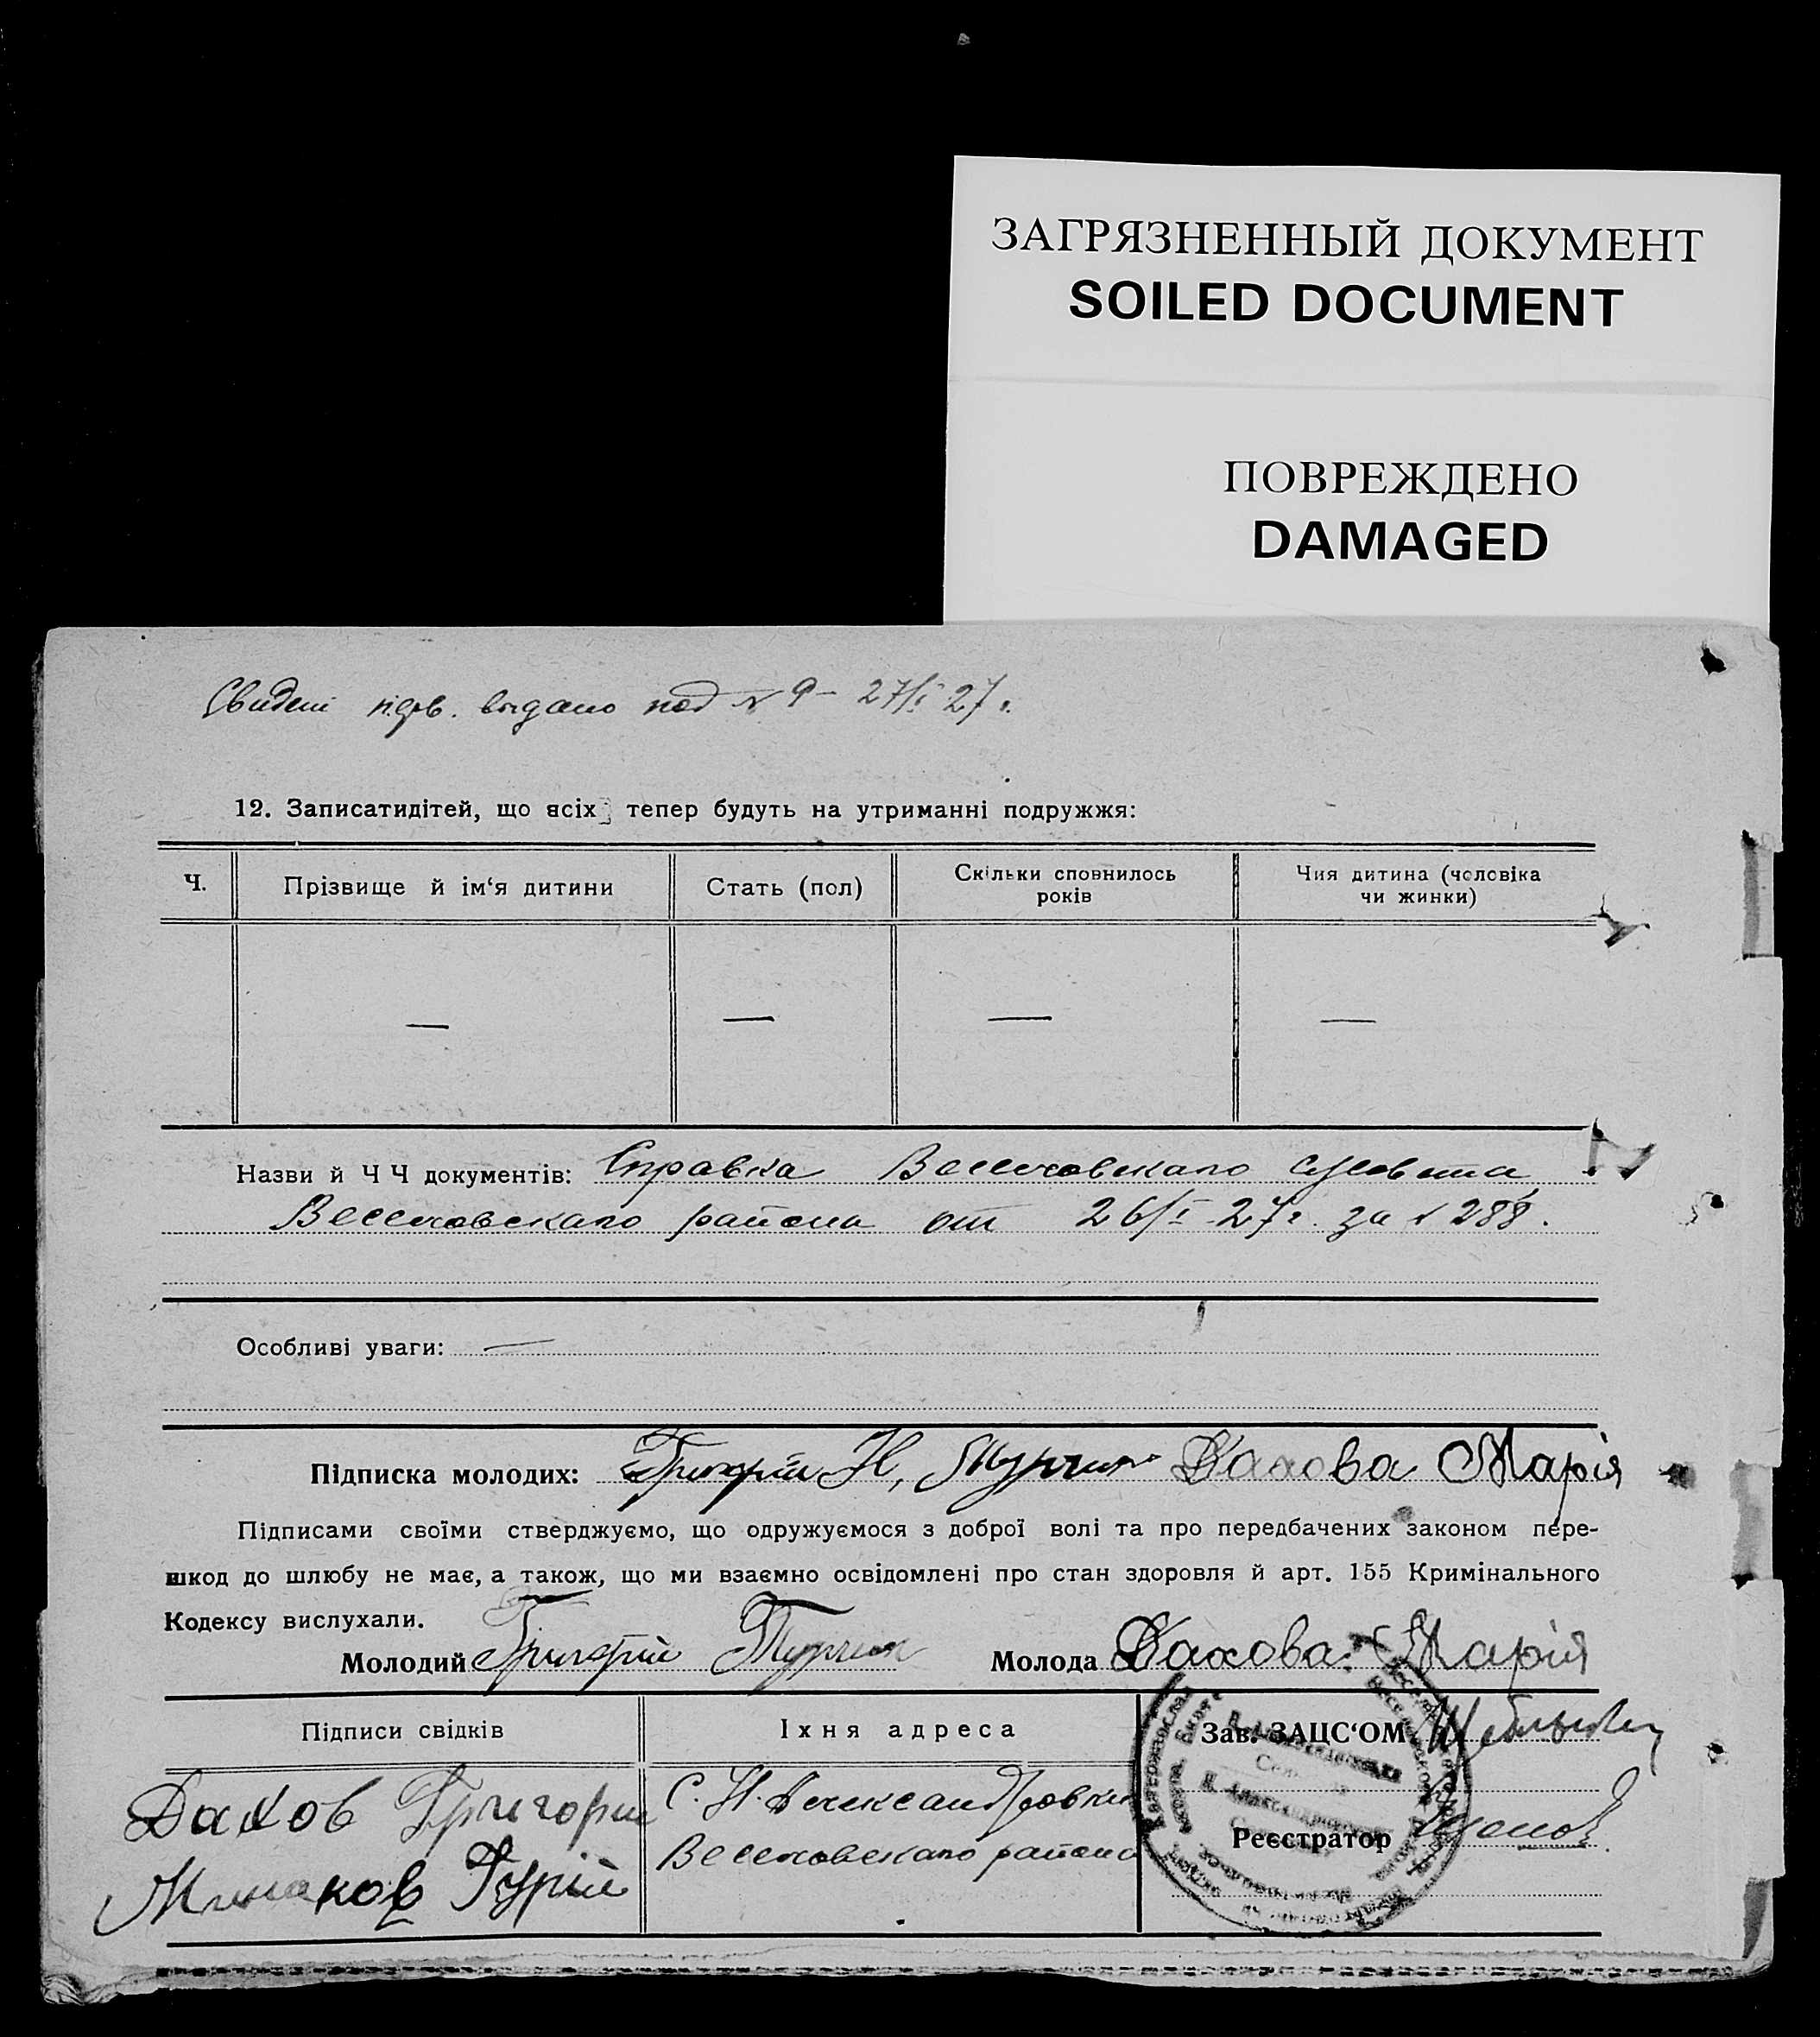 ЗАГРЯЗНЕННЫЙ ДОКУМЕНТ
SOILED DOCUMENT
ПОВРЕЖДЕНО
DAMAGED
выдано под № 9 – 27/I 27 г.
12. Записатидітей, що всіх тепер будуть на утриманні подружжя:
Ч. Прізвище й ім‘я дитини Стать (пол) Скільки сповнилось років Чия дитина (чоловіка чи жинки)
— — — —
Назви й Ч Ч документів: Справка Веселовскаго
Веселовскаго района от 26/I 27 г. за № 288.
Особливі уваги: —
Підписка молодих: Григорій Н, Турчин Дахова Марія
Підписами своїми стверджуємо, що одружуємося з доброї волі та про передбачених законом пере-
шкод до шлюбу не має, а також, що ми взаємно освідомлені про стан здоровля й арт. 155 Кримінального
Кодексу вислухали.
Молодий Григорій Турчин Молода Дахова Марія
Підписи свідків Їхня адреса Зав. ЗАЦС‘ОМ
Дахов Григорий С. Н. Александровки
Реєстратор
Минаков Гурій Веселовскаго района